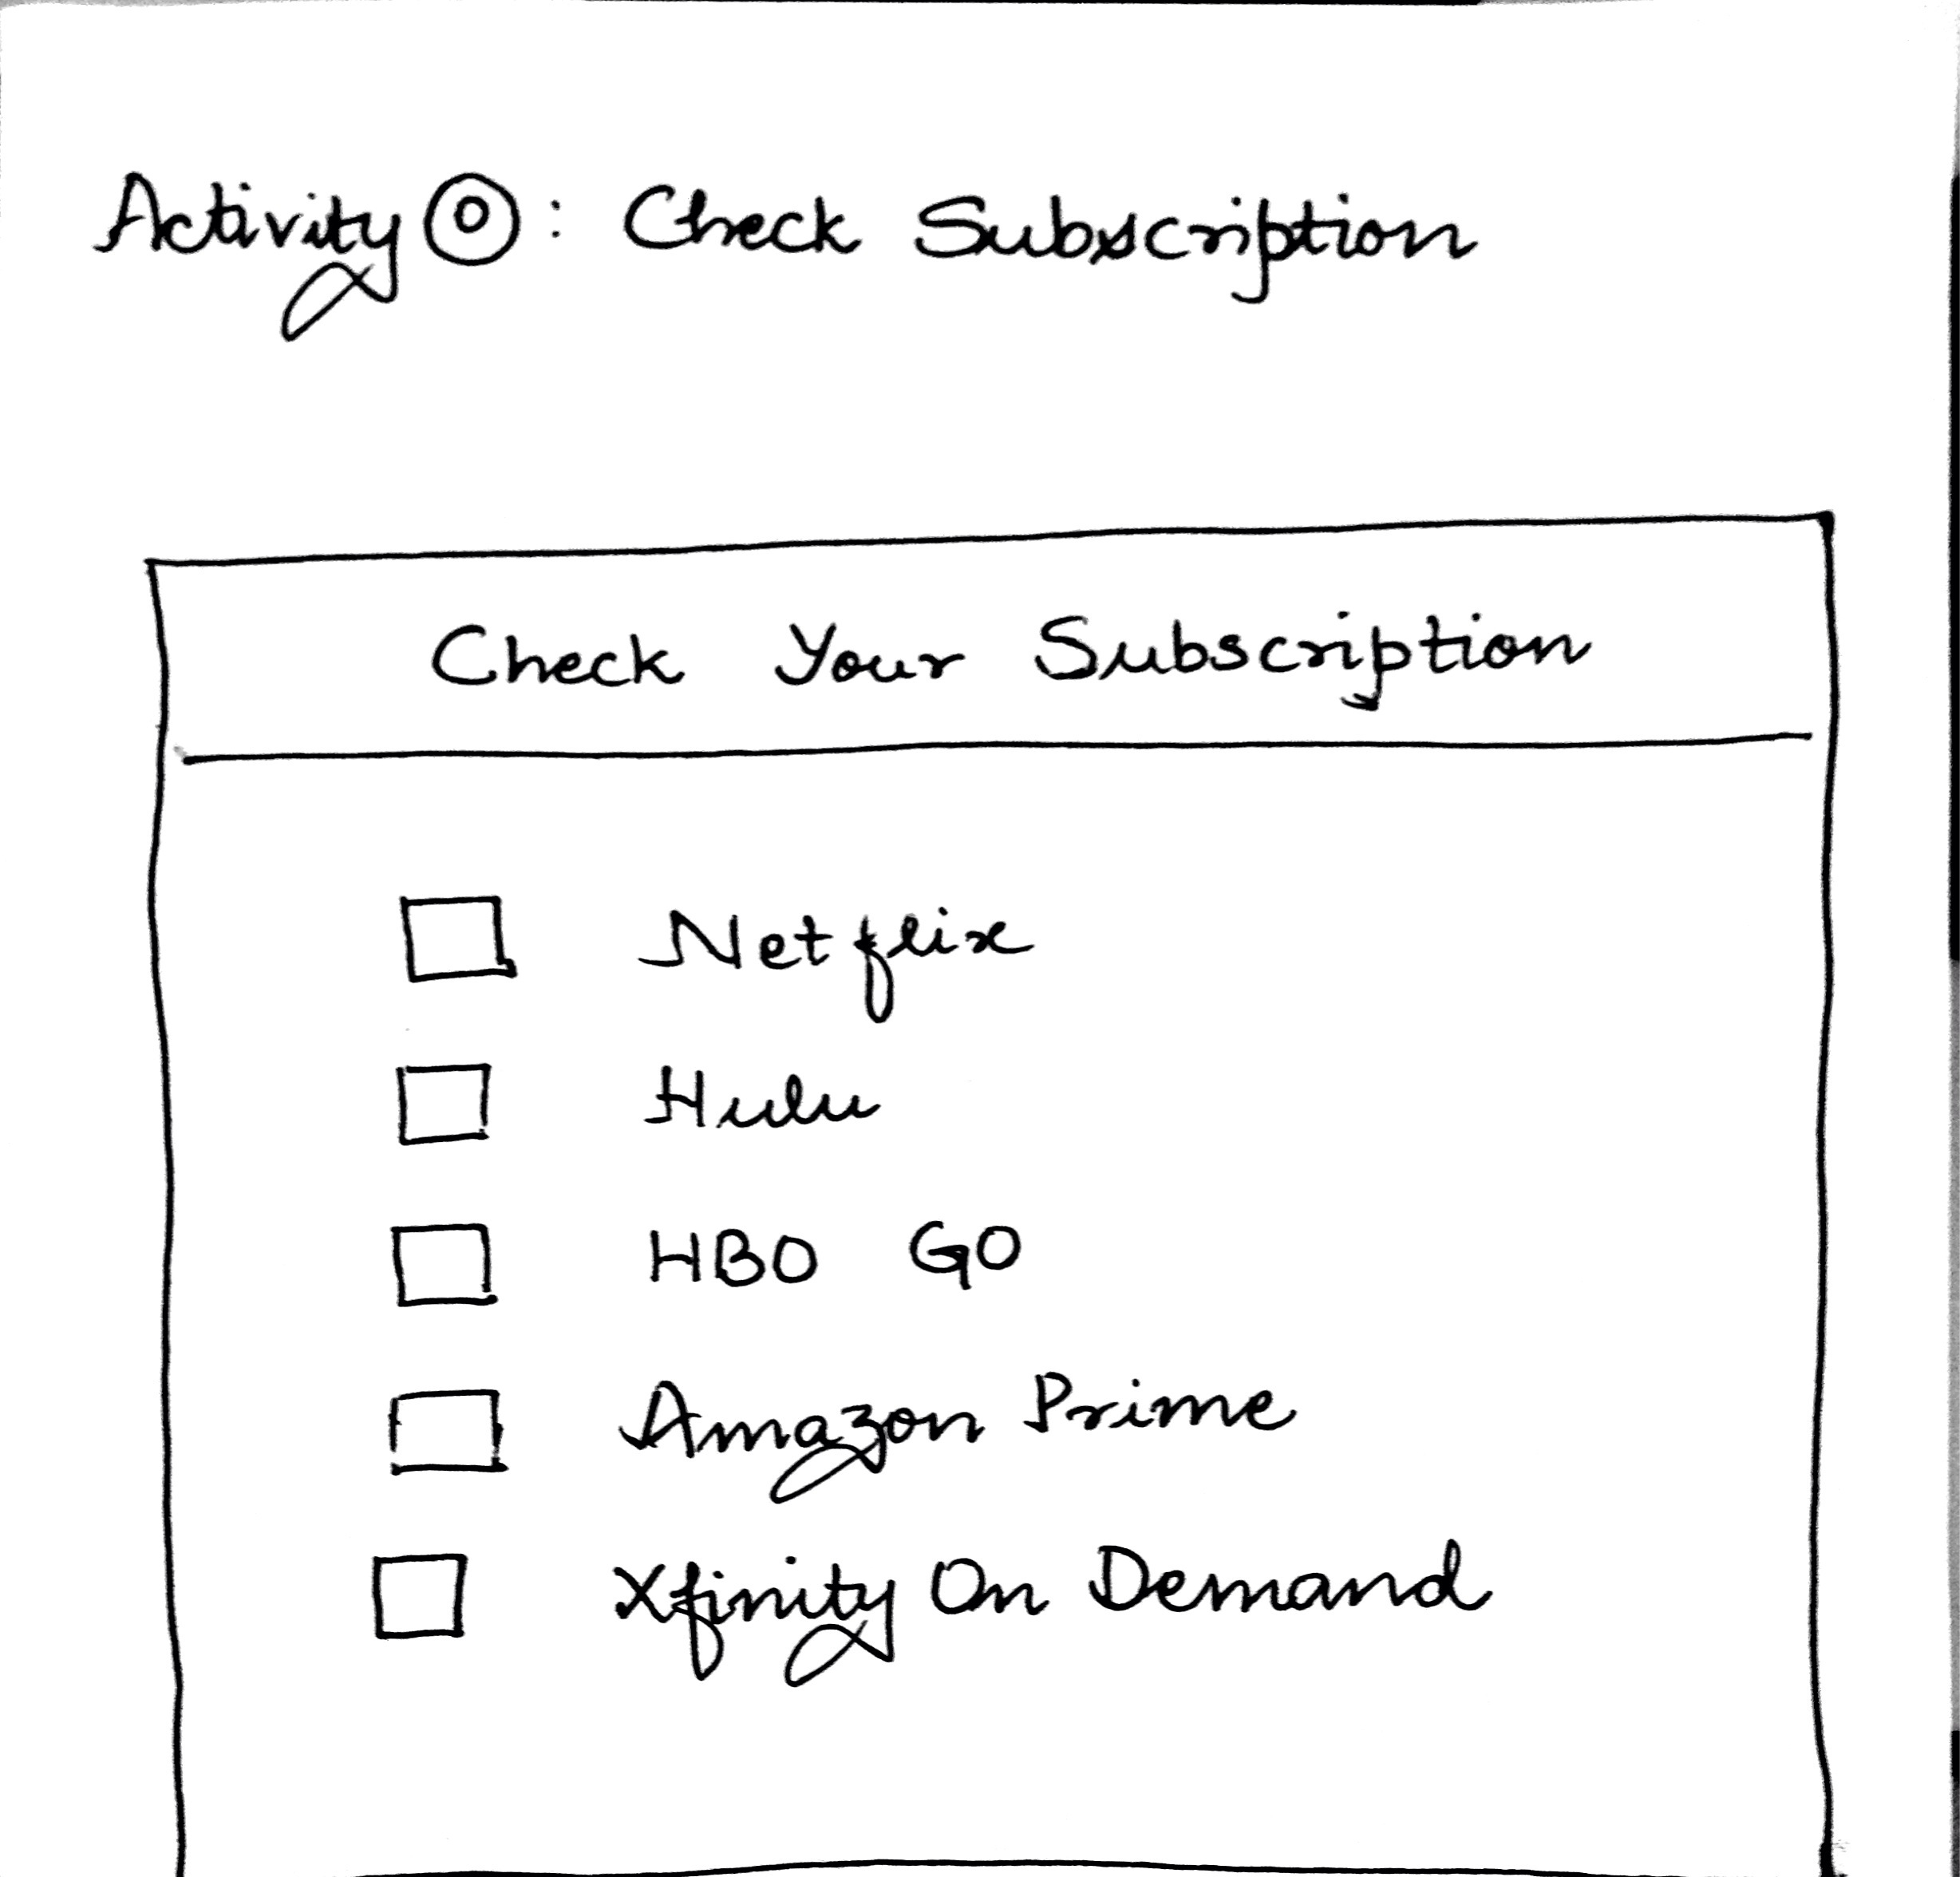 Activity 0: Check Subscription
Check Your Subscription
Netflix
Hulu
HBO GO
Amazon Prime
Xfinity On Demand